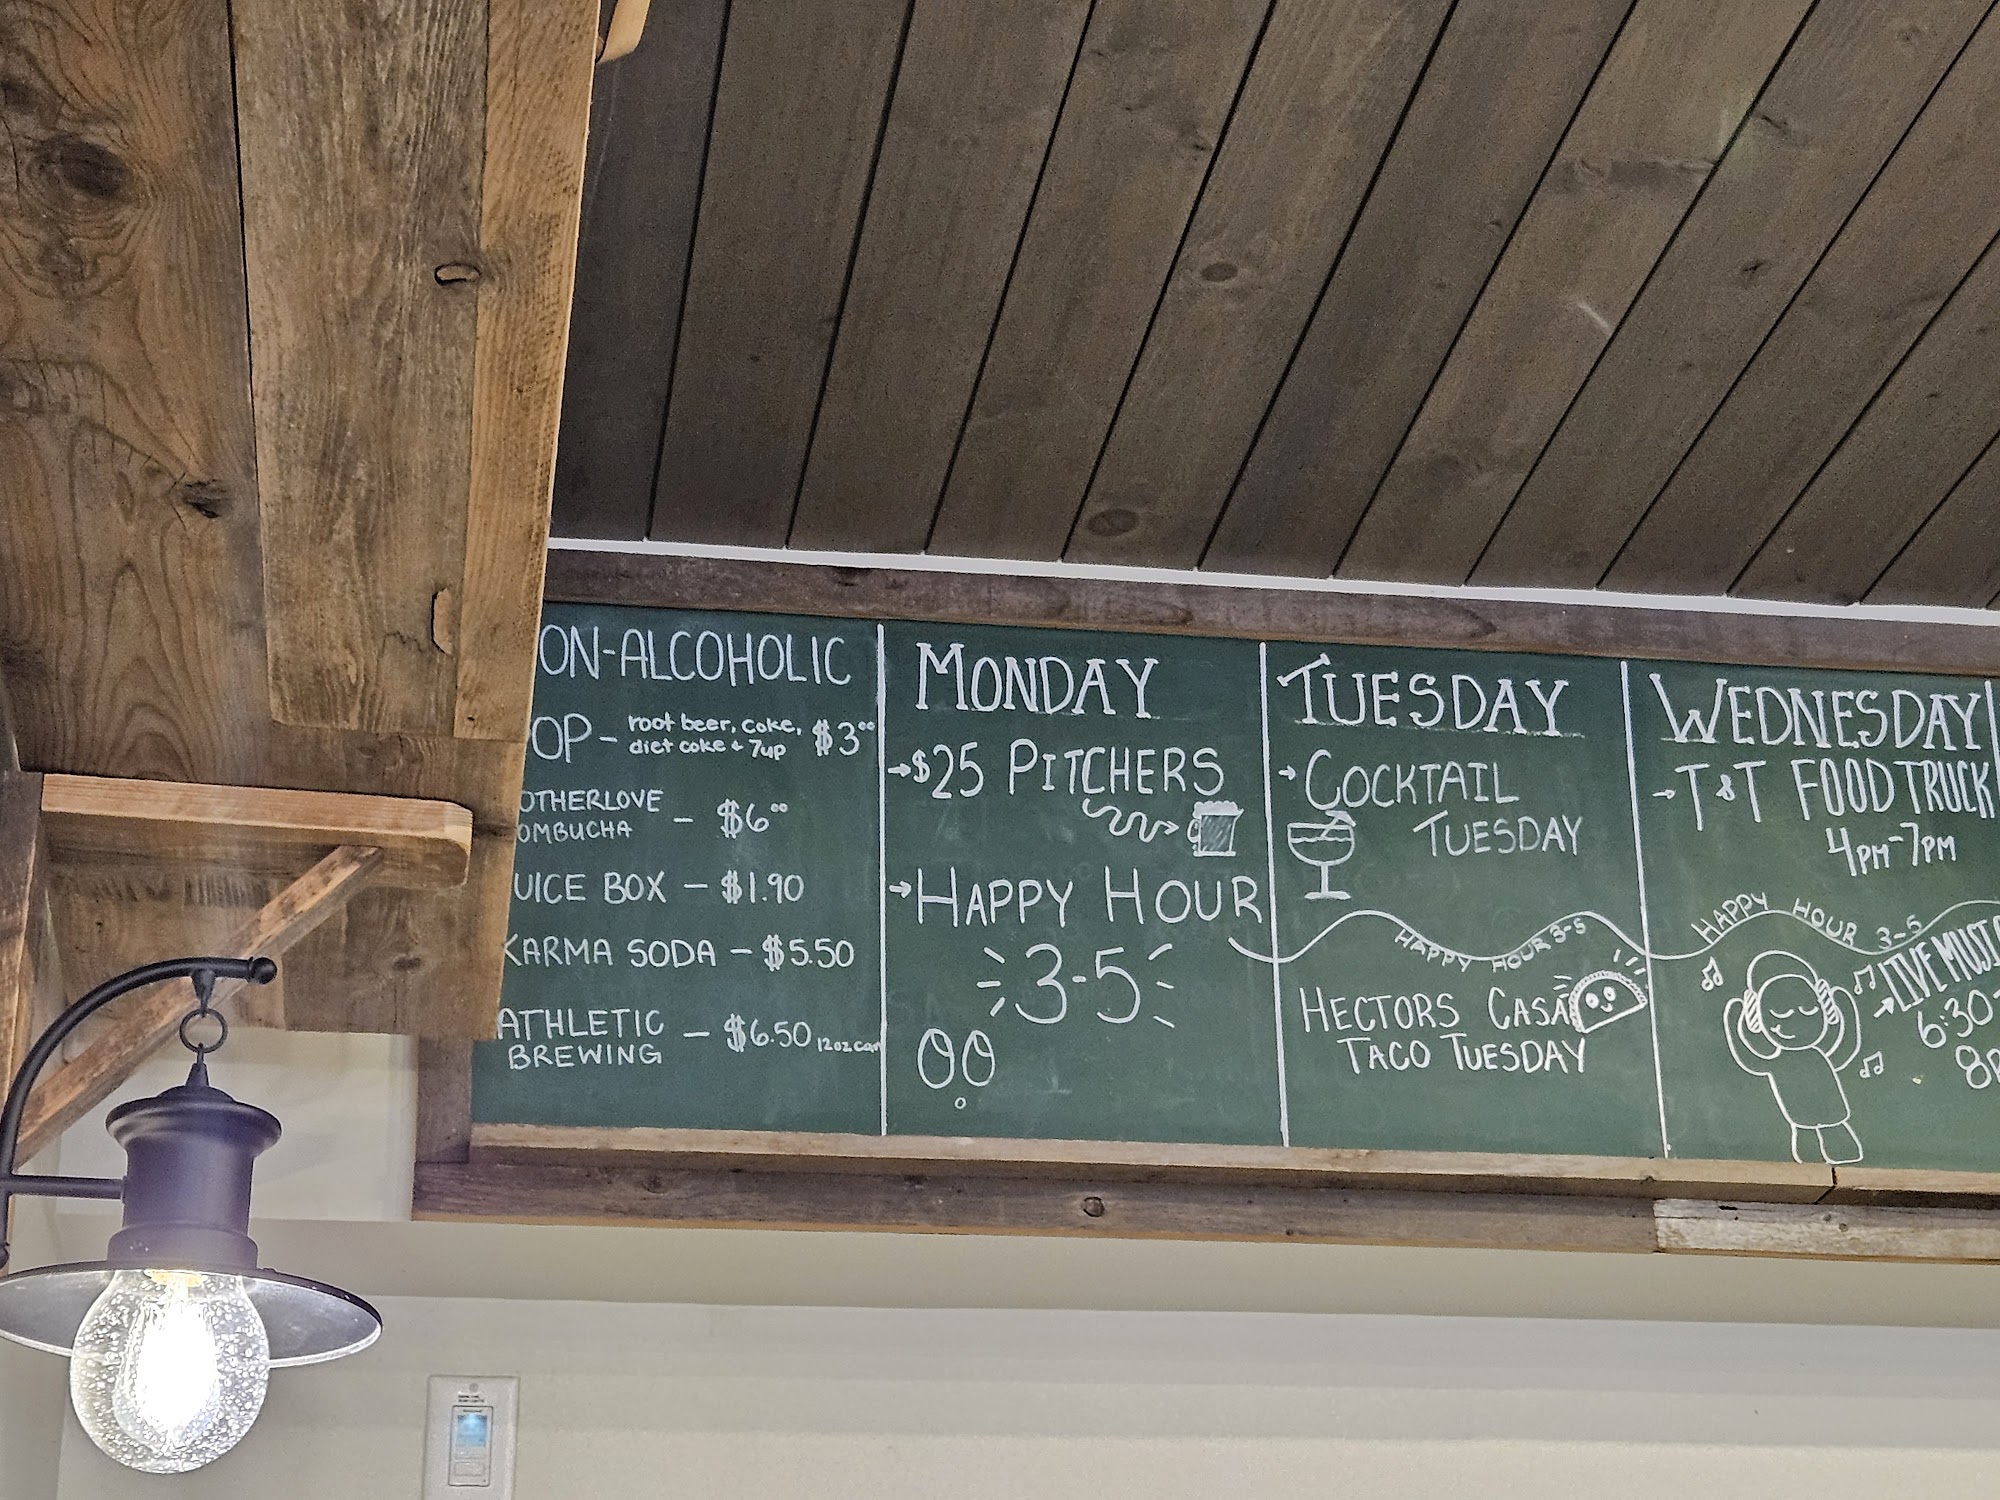 ON-ALCOHOLIC
OP - root beer, coke,
diet coke & 7up $3.00
OTHERLOVE
OMBUCHA - $6.00
UICE BOX - $1.90
KARMA SODA - $5.50
ATHLETIC
BREWING - $6.50 12oz can
MONDAY
→ $25 PITCHERS
→ HAPPY HOUR
3-5
TUESDAY
→ COCKTAIL
TUESDAY
HAPPY HOUR 3-5
HECTORS CASA
TACO TUESDAY
WEDNESDAY
→ T&T FOOD TRUCK
4PM-7PM
HAPPY HOUR 3-5
→ LIVE MUSIC
6:30-
8P